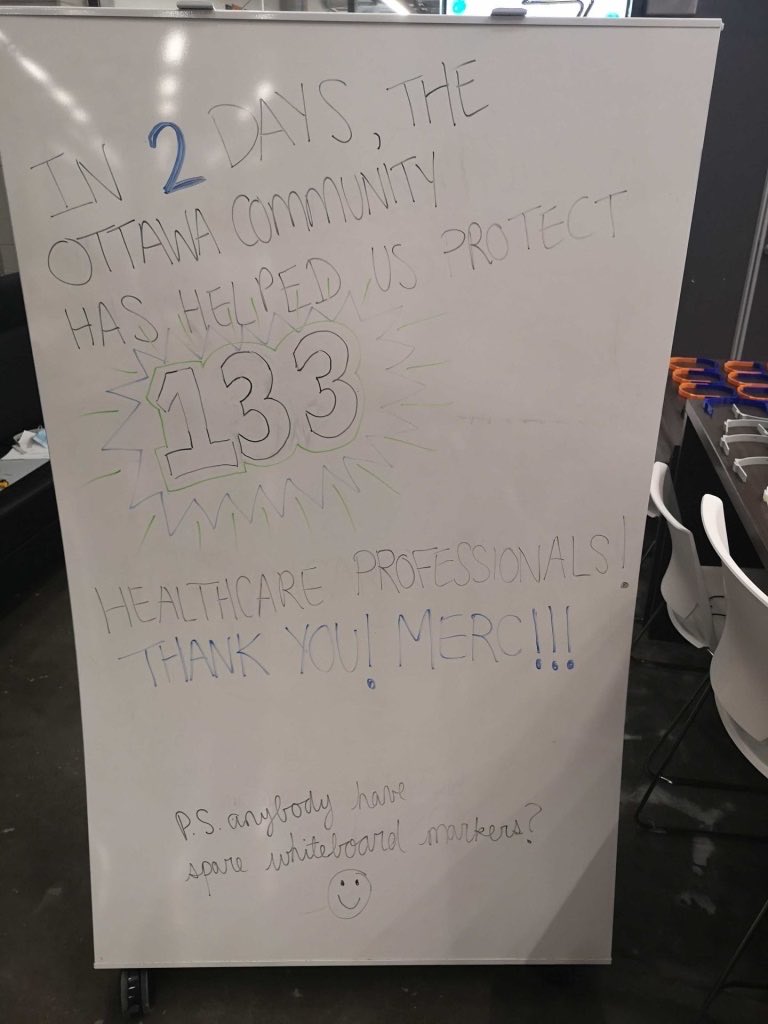 IN 2 DAYS, THE
OTTAWA COMMUNITY
HAS HELPED US PROTECT
133
HEALTHCARE PROFESSIONALS!
THANK YOU! MERC!!!
P.S. anybody have
spare whiteboard markers?